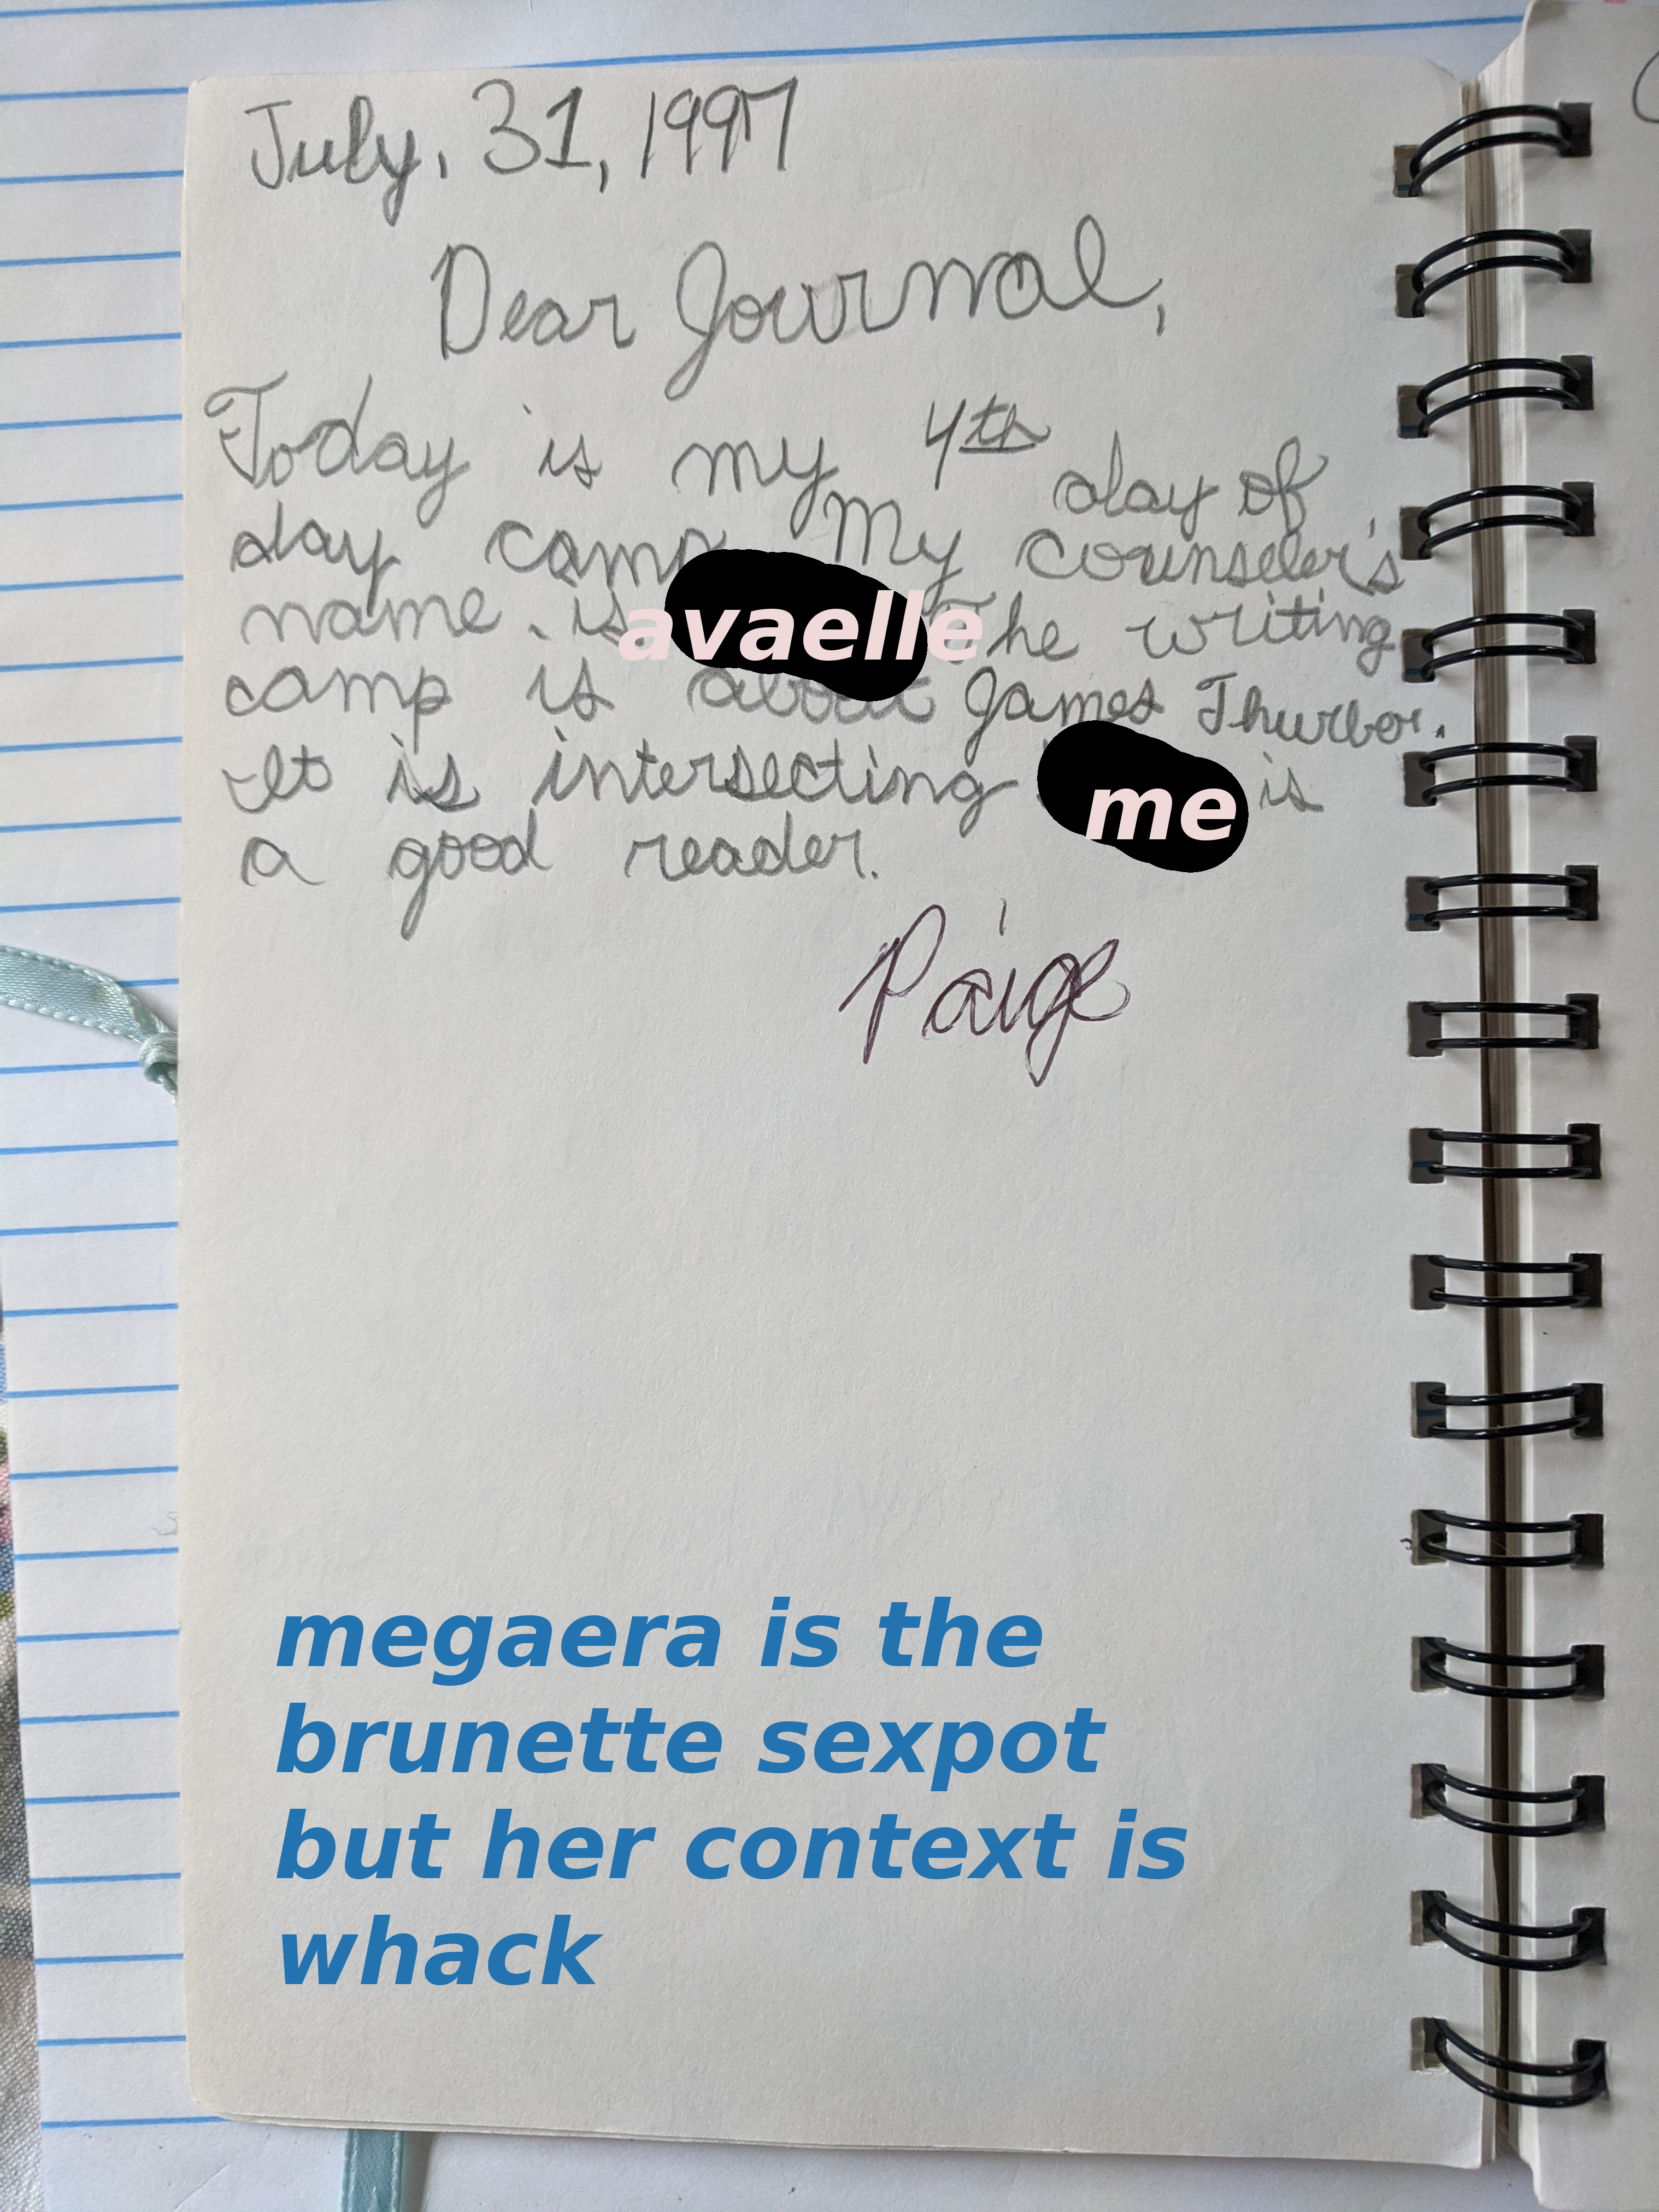 July, 31, 1997
Dear Journal,
Today is my 4th day of
day camp My counseler's
name is avaelle The writing
camp is about James Thurber.
It is intersecting me is
a good reader.
Paige
megaera is the
brunette sexpot
but her context is
whack